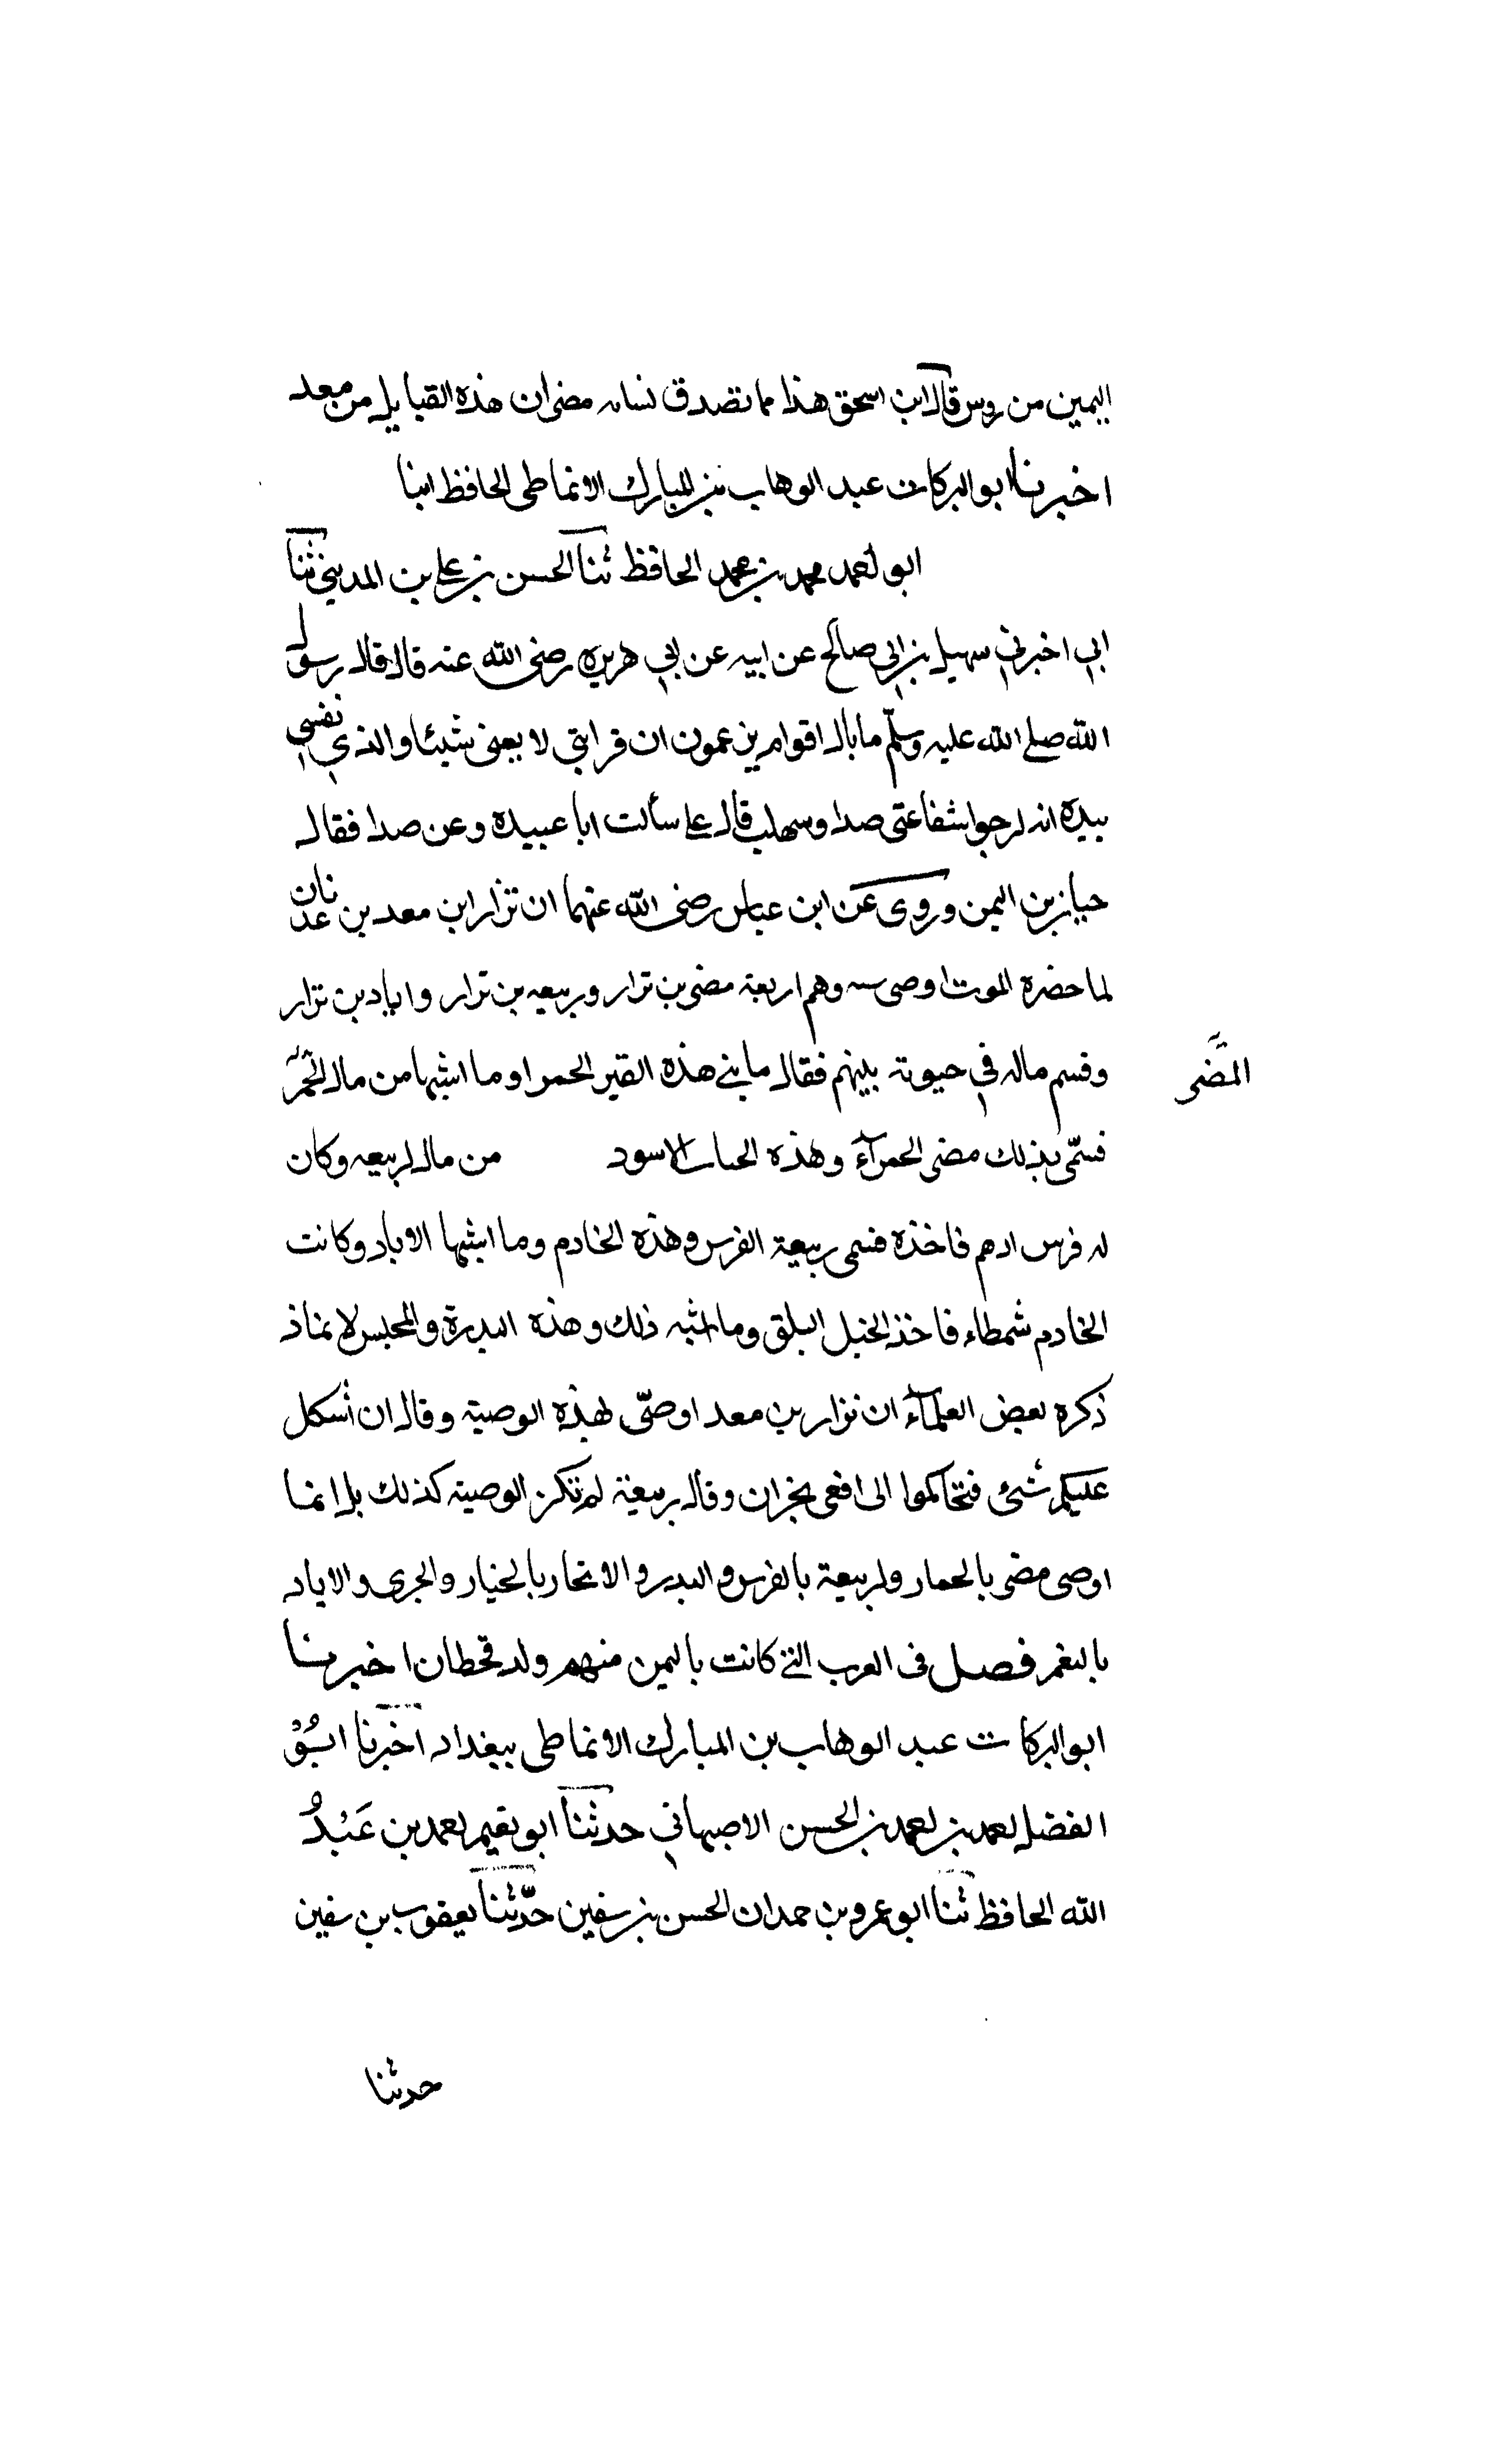 اليمين من روس قال ابن اسحق هذا مما تصدق نسابه مضر ان هذه القبايل من معد
اخبرنا ابو البركات عبد الوهاب بن المبارك الانماطى الحافظ انبا
ابو احمد محمد بن محمد الحافظ ثنا الحسن بن على بن المديني ثنا
ابي اخبرني سهيل بن ابي صالح عن ابيه عن ابي هريره رضى الله عنه قال قال رسول
الله صلى الله عليه وسلّم ما بال اقوام يزعمون ان قرابتي لا يعنى شيئا والذي نفسي
بيده انه لرجوا شفاعتى صدا وسهلب قال على سألت ابا عبيدة وعن صدا فقال
حيا بن اليمن وروى عن ابن عباس رضى الله عنهما ان نزار ابن معد بن عدنان
لما حضره الموت اوصى وهم اربعة مضر بن نزار وربيعه بن نزار واياد بن نزار
وقسم ماله في حيوته بينهم فقال ما بنى هذه القبر الحمرا وما اشبها من مال
المضر
فسمّى بذلك مضر الحمرآء وهذه الحباب الاسود من مال لربيعه وكان
له فرس ادهم فاخذه فسمى ربيعة الفرس وهذه الخادم وما اشبها الاياد وكانت
الخادم شمطاء فاخذ الخيل البلق وما اشبه ذلك وهذه البدرة والمجلس لانمار
ذكره بعض العلمآء ان نزار بن معد اوصّى بهذه الوصية وقال ان أسكل
عليكم شئ فتحاكموا الى افعى نجران وقال ربيعة لم تكن الوصية كذلك بل انما
اوصى مضر بالحمار ولربيعة بالفرس والبدر والانمار بالخيار والجرى والاياد
بالنغم فصل فى العرب التى كانت باليمن منهم ولد قحطان اخبرنا
ابو البركات عبد الوهاب بن المبارك الانماطى ببغداد اخبرنا ابو
الفضل احمد بن احمد بن الحسن الاصبهاني حدثنا ابو نعيم احمد بن عَبْدُ
الله الحافظ ثنا ابو عمرو بن حمدان الحسن بن سفين حدّثنا يعقوب بن سفين
حدثنا